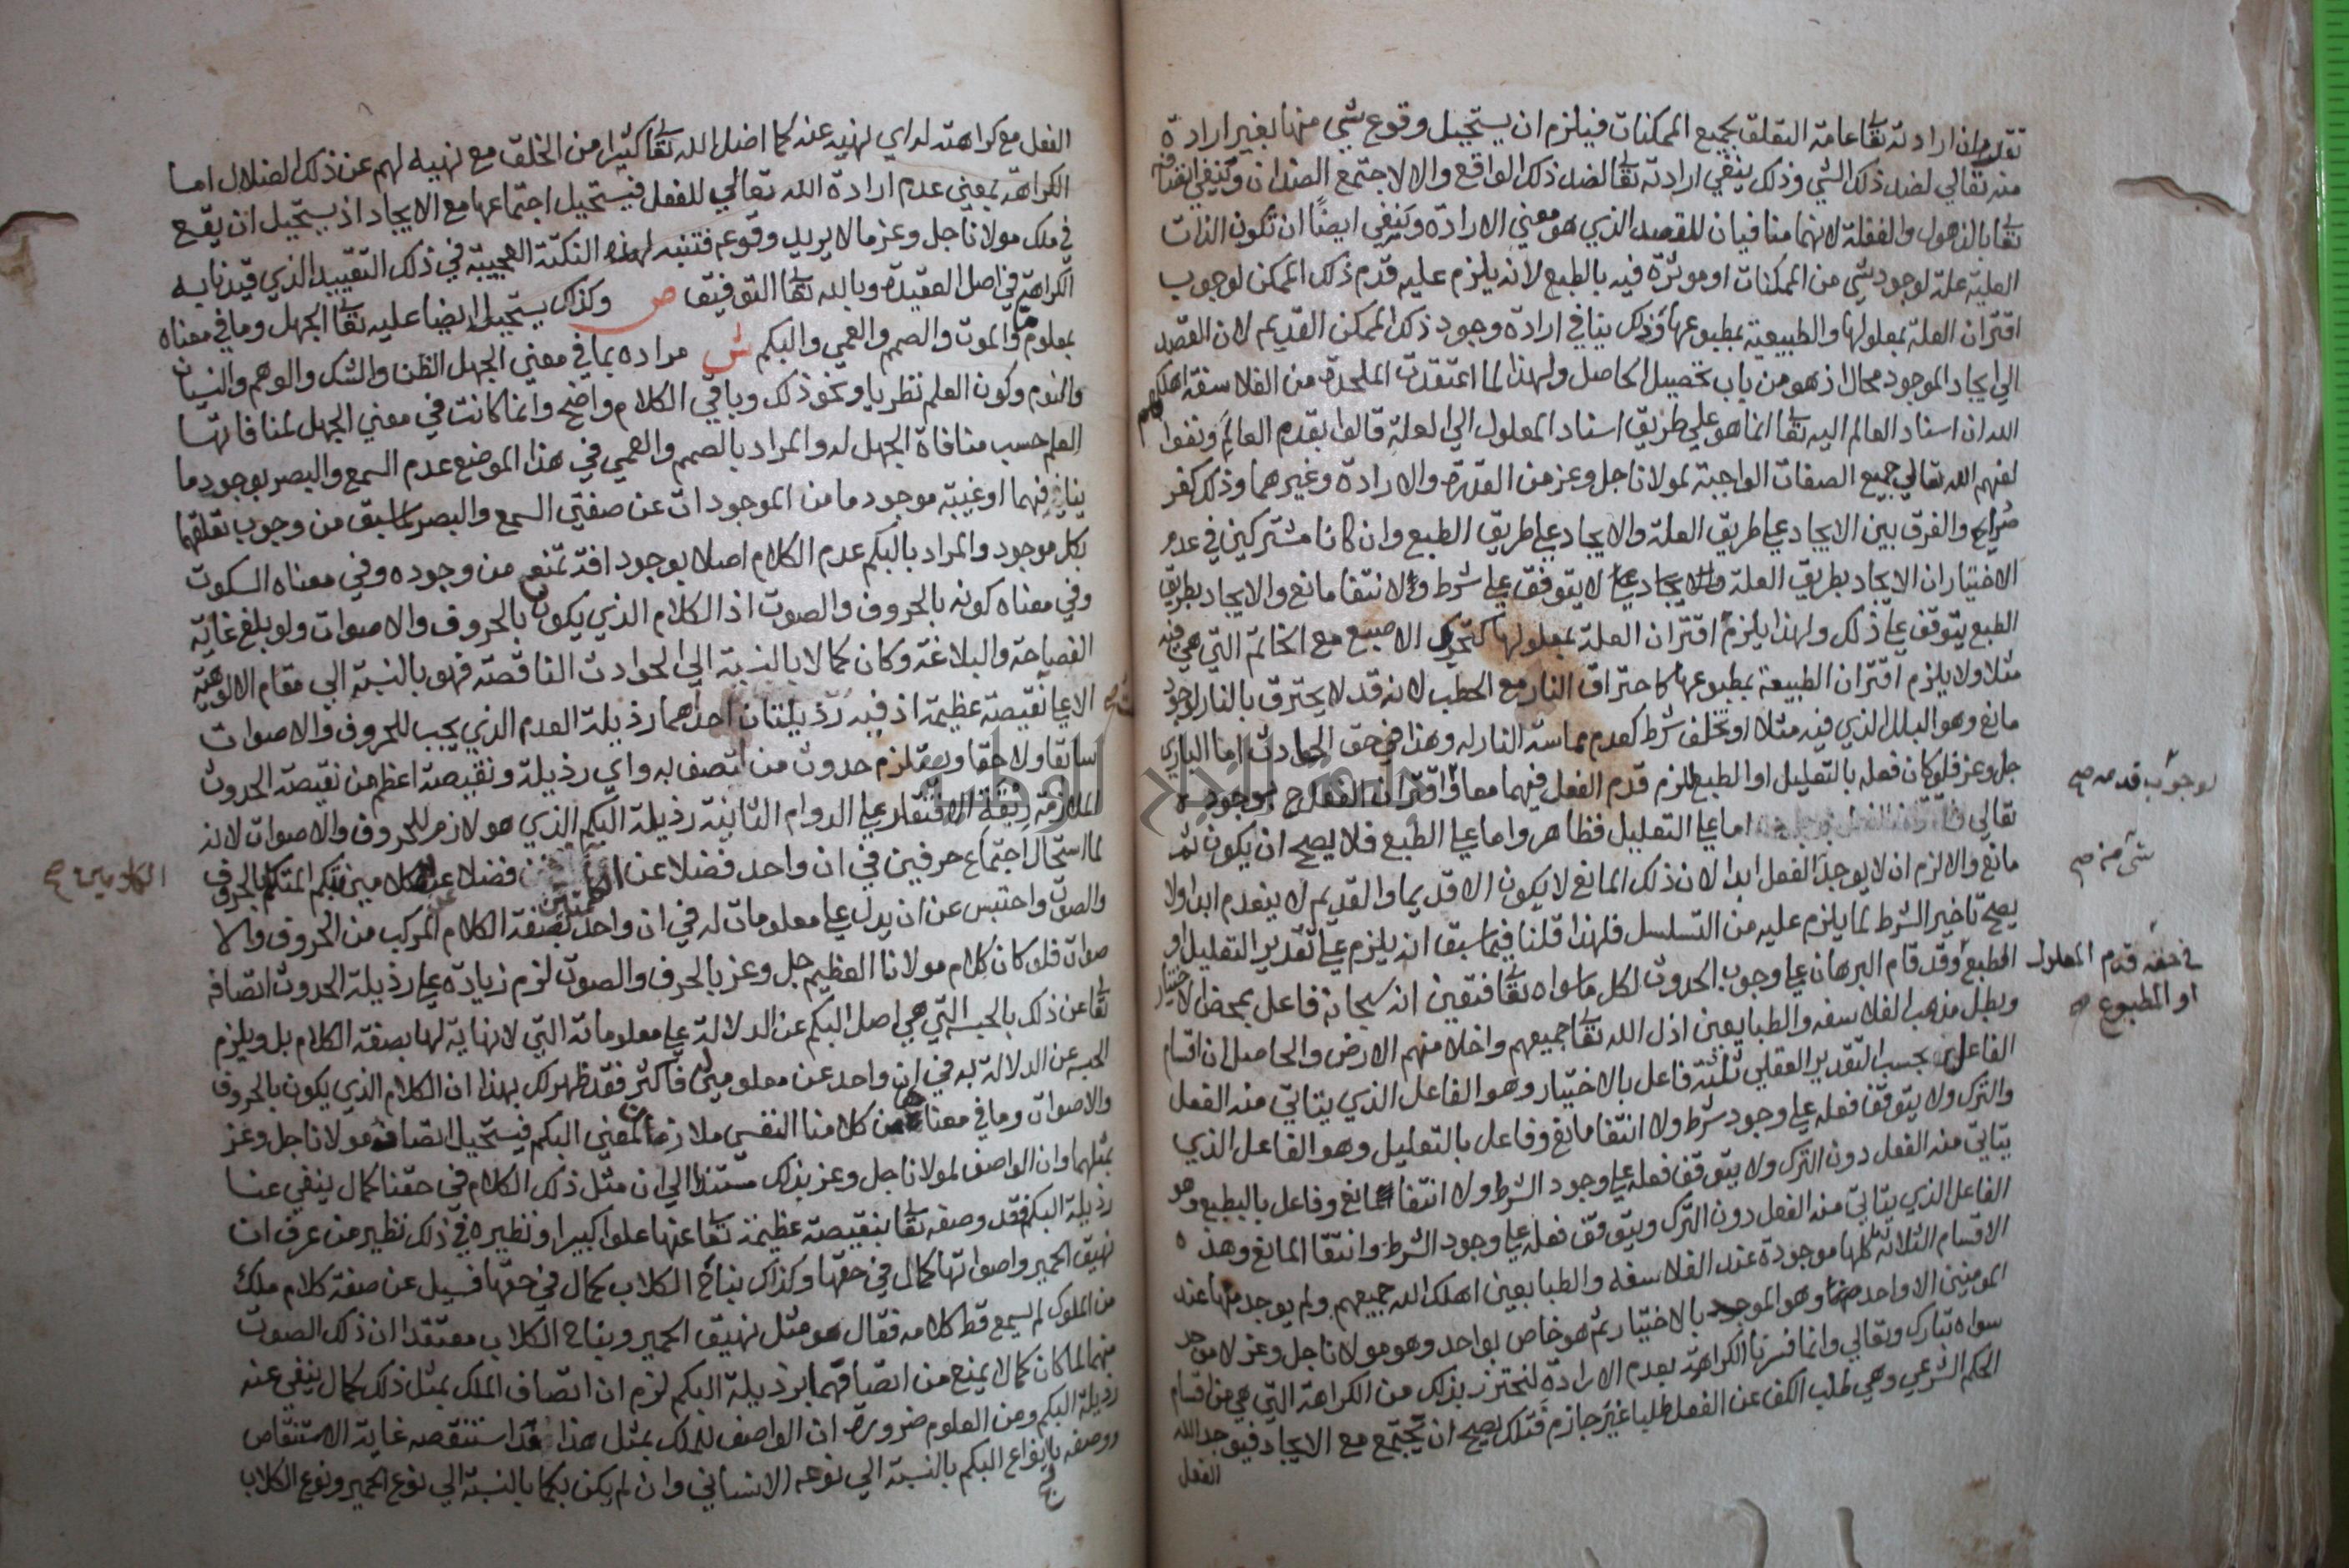 تقدم ان ارادته تعالى عامة التعلق بجميع الممكنات فيلزم ان يستحيل وقوع شي منها بغير ارادة
منه تعالي لضد ذلك الشي وذلك ينفي ارادته تعالى لضد ذلك الواقع والا لاجتمع الضدان وينفي
تعالى بالذهول والغفلة لانهما منافيان للقصد الذي هو معني الارادة وينفي ايضا ان تكون الذات
العلية علة لوجود شي من الممكنات او موثرة فيه بالطبع لانه يلزم عليه قدم ذلك الممكن لوجوب
اقتران العلة بمعلولها والطبيعية بمطبوعها وذلك ينافي ارادة وجود ذلك الممكن القديم لان القصد
الي ايجاد الموجود محال اذ هو من باب تحصيل الحاصل ولهذا لما اعتقدت الملحدة من الفلاسفة اهلكهم
الله ان اسناد العالم اليه تعالى انما هو علي طريق اسناد المعلول الي العلة قالوا بقدم العالم ونفوا
لعنهم الله تعالي جميع الصفات الواجبة لمولانا جل وعز من القدرة والارادة وغيرهما وذلك كفر
صراح والفرق بين الايجاد علي طريق العلة والايجاد علي طريق الطبع وان كانا مشتركين في عدم
الاختيار ان الايجاد بطريق العلة لا يتوقف علي شرط ولا انتفا مانع والايجاد بطريق
الطبع يتوقف علي ذلك ولهذا يلزم اقتران العلة بمعلولها كتحرك الاصبع مع الخاتم التي هي فيه
مثلا ولا يلزم اقتران الطبيعة بمطبوعها كاحتراق النار مع الحطب لانه قد لا يحترق بالنار لوجود
مانع وهو البلل الذي فيه مثلا او تخلف شرط كعدم مماسة النار له وهذا في حق الحوادث اما الباري
جل وعز فلو كان فعله بالتعليل او الطبع للزم قدم الفعل فيهما معا واقتران الفعل ح بوجوده
لوجوب قدمه صح
تعالي اما علي التعليل فظاهر واما علي الطبع فلا يصح ان يكون ثم
مانع والا لزم ان لا يوجد الفعل ابدا لان ذلك المانع لا يكون الا قديما والقديم لا ينعدم ابدا ولا
شي منه صح
يصح تاخير الشرط لما يلزم عليه من التسلسل فلهذا قلنا فيما سبق انه يلزم علي تقدير التعليل او
الطبع وقد قام البرهان علي وجوب الحدوث لكل ما سواه تعالى فتعين انه سبحانه فاعل بمحض الاختيار
في حقه قدم المعلول
او المطبوع صح
وبطل مذهب الفلاسفه والطبايعين اذل الله تعالى جميعهم واخلا منهم الارض والحاصل ان اقسام
الفاعل بحسب التقدير العقلي ثلثة فاعل بالاختيار وهو الفاعل الذي يتاتي منه الفعل
والترك ولا يتوقف فعله علي وجود شرط ولا انتفا مانع وفاعل بالتعليل وهو الفاعل الذي
يتاتي منه الفعل دون الترك ولا يتوقف فعله علي وجود الشرط ولا انتفا مانع وفاعل بالطبع وهو
الفاعل الذي يتاتي منه الفعل دون الترك ويتوقف فعله علي وجود الشرط وانتفا المانع وهذه
الاقسام الثلاثة كلها موجودة عند الفلاسفه والطبايعين اهلك الله جميعهم ولم يوجد منها عند
المومنين الا واحد وهو الموجد بالاختيار ثم هو خاص بواحد وهو مولانا جل وعز لا موجد
سواه تبارك وتعالي وانما فسرنا الكراهة بعدم الارادة لنحترز بذلك من الكراهة التي هي من اقسام
الحكم الشرعي وهي طلب الكف عن الفعل طلبا غير جازم فتلك يصح ان تجتمع مع الايجاد فيوجد الله
الفعل
الفعل مع كراهته له اي نهيه عنه كما اضل الله تعالى كثيرا من الخلق مع نهيه لهم عن ذلك الضلال اما
الكراهة بمعني عدم ارادة الله تعالي للفعل فيستحيل اجتماعها مع الايجاد اذ يستحيل ان يقع
في ملك مولانا جل وعز ما لا يريد وقوعه فتنبه لهذه النكتة العجيبة في ذلك التقييد الذي قيدنا به
الكراهة في اصل العقيدة وبالله تعالى التوفيق ص وكذلك يستحيل ايضا عليه تعالى الجهل وما في معناه
بمعلوم ما والموت والصمم والعمي والبكم ش مراده بما في معني الجهل الظن والشك والوهم والنسيان
والنوم وكون العلم نظريا ونحو ذلك وباقي الكلام واضح وانما كانت في معني الجهل لمنافاتها
العلم حسب منافاة الجهل له والمراد بالصمم والعمي في هذا الموضع عدم السمع والبصر بوجود ما
ينافيهما او غيبة موجود ما من الموجودات عن صفتي السمع والبصر لما سبق من وجوب تعلقهما
بكل موجود والمراد بالبكم عدم الكلام اصلا بوجود افة تمنع من وجوده وفي معناه السكوت
وفي معناه كونه بالحروف والصوت اذ الكلام الذي يكون بالحروف والاصوات ولو بلغ غاية
الفصاحة والبلاغة وكان كمالا بالنسبة الي الحوادث الناقصة فهو بالنسبة الي مقام الالوهية
الاعلي نقيصة عظيمة اذ فيه رذيلتان احداهما رذيلة العدم الذي يجب للحروف والاصوات
سابقا ولاحقا ويستلزم حدوث من اتصف به واي رذيلة ونقيصة اعظم من نقيصة الحدوث
الملازمة ربقة الافتقار علي الدوام الثانية رذيلة البكم الذي هو لازم للحروف والاصوات لانه
لما استحال اجتماع حرفين في ان واحد فضلا عن الكلمتين فضلا عن الكلامين تبكم المتكلم بالحروف
الكلامين صح
والصوت واحتبس عن ان يدل علي معلومات له في ان واحد بصفة الكلام المركب من الحروف والا
صوات فلو كان كلام مولانا العظيم جل وعز بالحرف والصوت لزم زيادة علي رذيلة الحدوث اتصافه
تعالى عن ذلك بالحبسة التي هي اصل البكم عن الدلالة علي معلوماته التي لا نهاية لها بصفة الكلام بل ويلزم
الحبسة عن الدلالة به في ان واحد عن معلومين فاكثر فقد ظهر لك بهذا ان الكلام الذي يكون بالحروف
والاصوات وما في معناها من كلامنا النفسي ملازمان لمعني البكم فيستحيل اتصاف مولانا جل وعز
بمثلهما وان الواصف لمولانا جل وعز بذلك مستندا الي ان مثل ذلك الكلام في حقنا كمال ينفي عنا
رذيلة البكم فقد وصفه تعالى بنقيصة عظيمة تعالى عنها علوا كبيرا ونظيره في ذلك نظير من عرف ان
نهيق الحمير واصواتها كمال في حقها وكذلك نباح الكلاب كمال في حقها فسيل عن صفة كلام ملك
من الملوك لم يسمع قط كلامه فقال هو مثل نهيق الحمير ونباح الكلاب معتقدا ان ذلك الصوت
منهما لما كان كمالا يمنع من اتصافهما برذيلة البكم لزم ان اتصاف الملك بمثل ذلك كمال ينفي عنه
رذيلة البكم ومن العلوم ضرورة ان الواصف للملك بمثل هذا قد استنقصه غاية الاستنقاص
ووصفه بانواع البكم بالنسبة الي نوعه الانساني وان لم يكن بكما بالنسبة الي نوع الحمير ونوع الكلاب